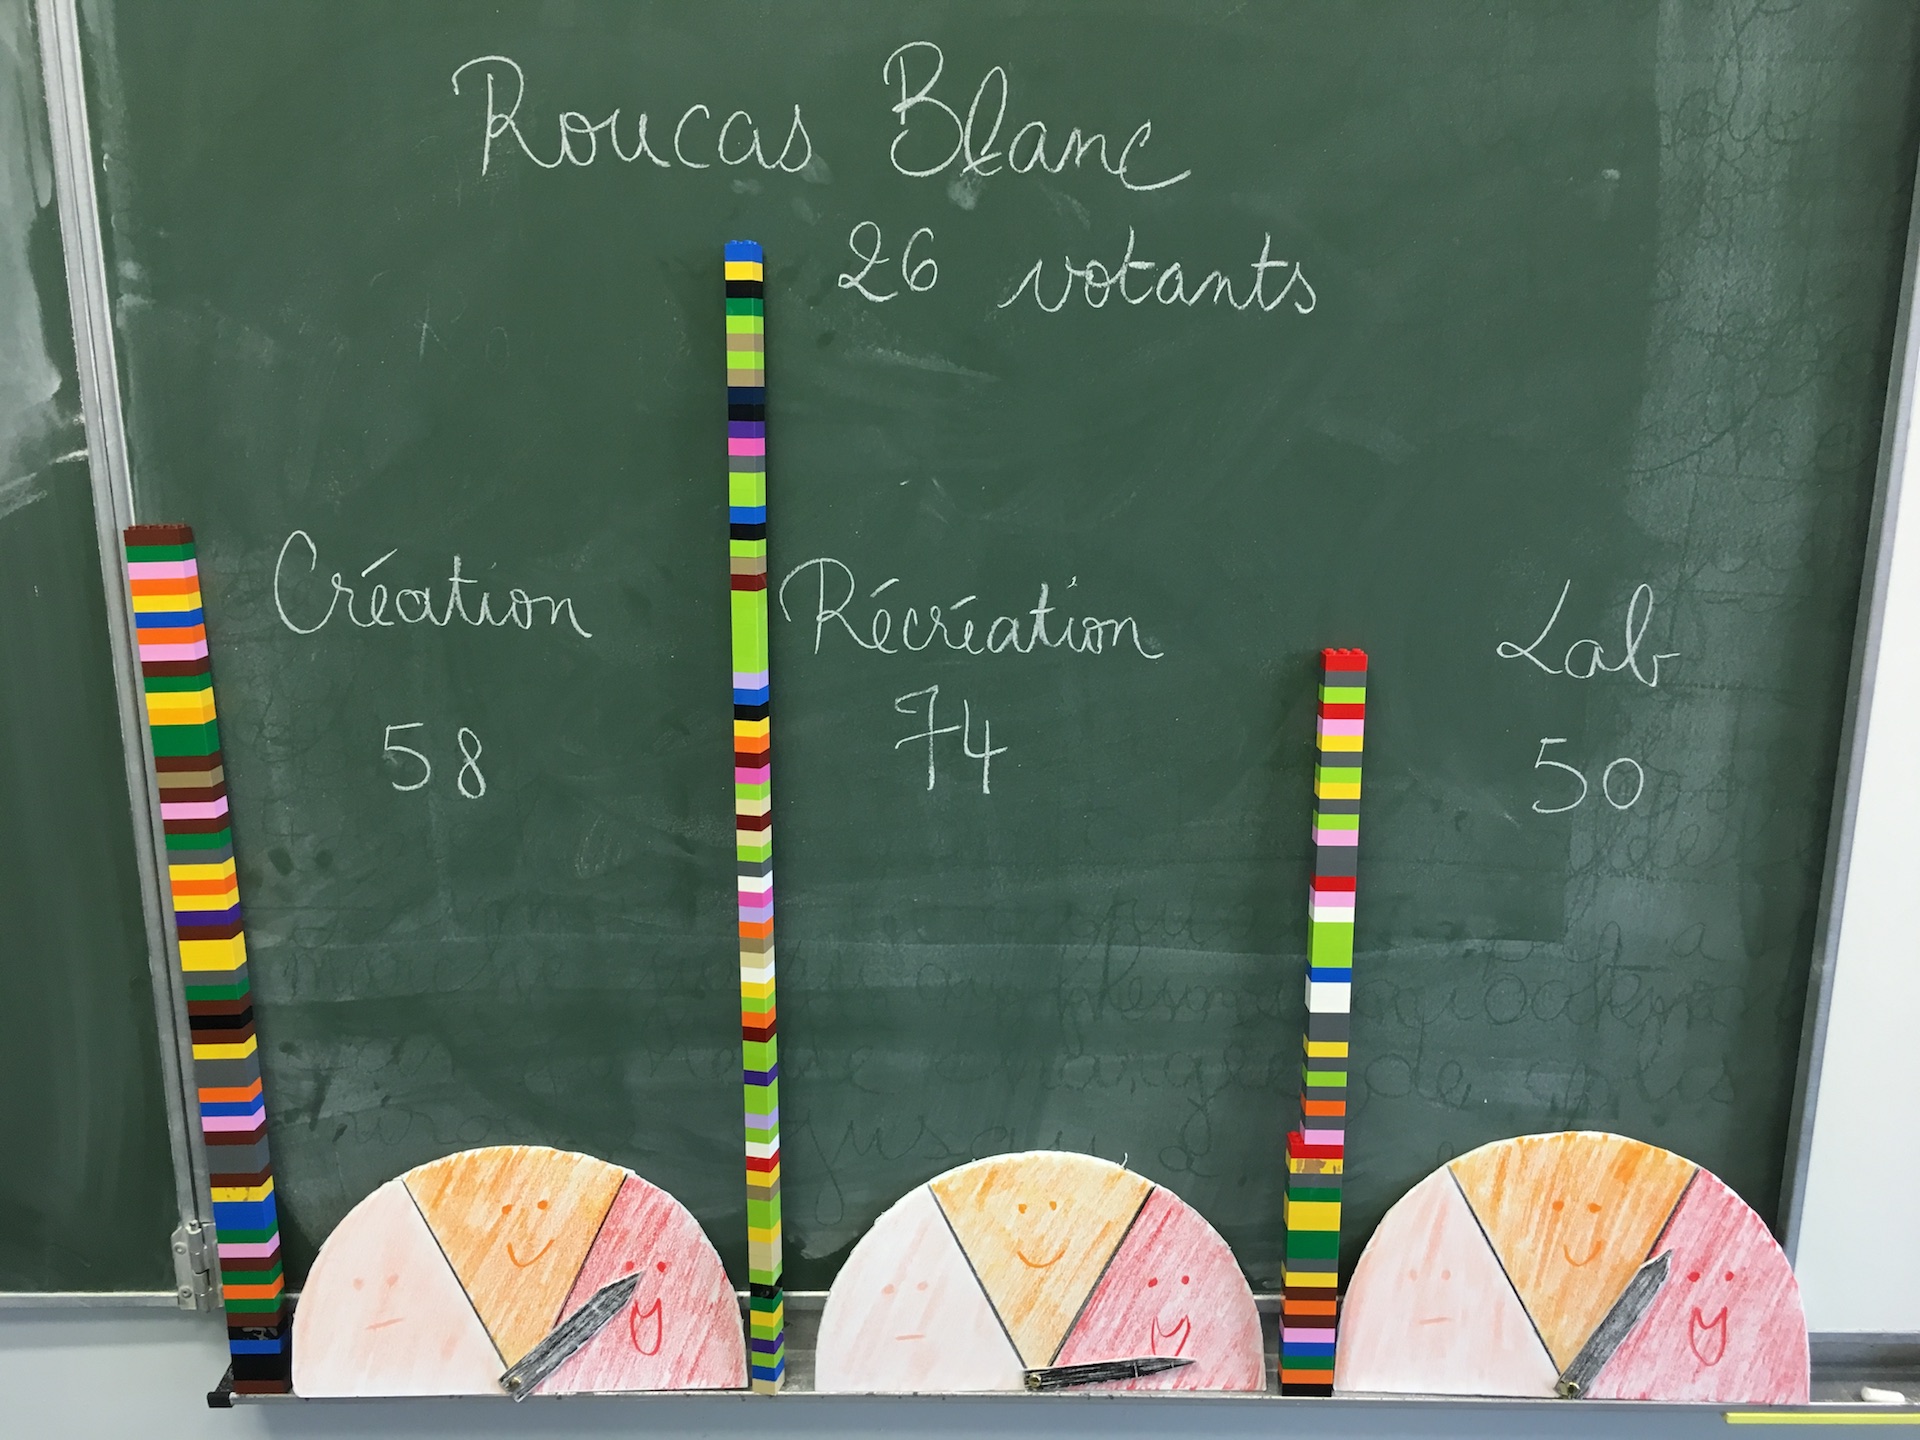 Roucas Blanc
26 votants
Création
Récréation
Lab
58
74
50